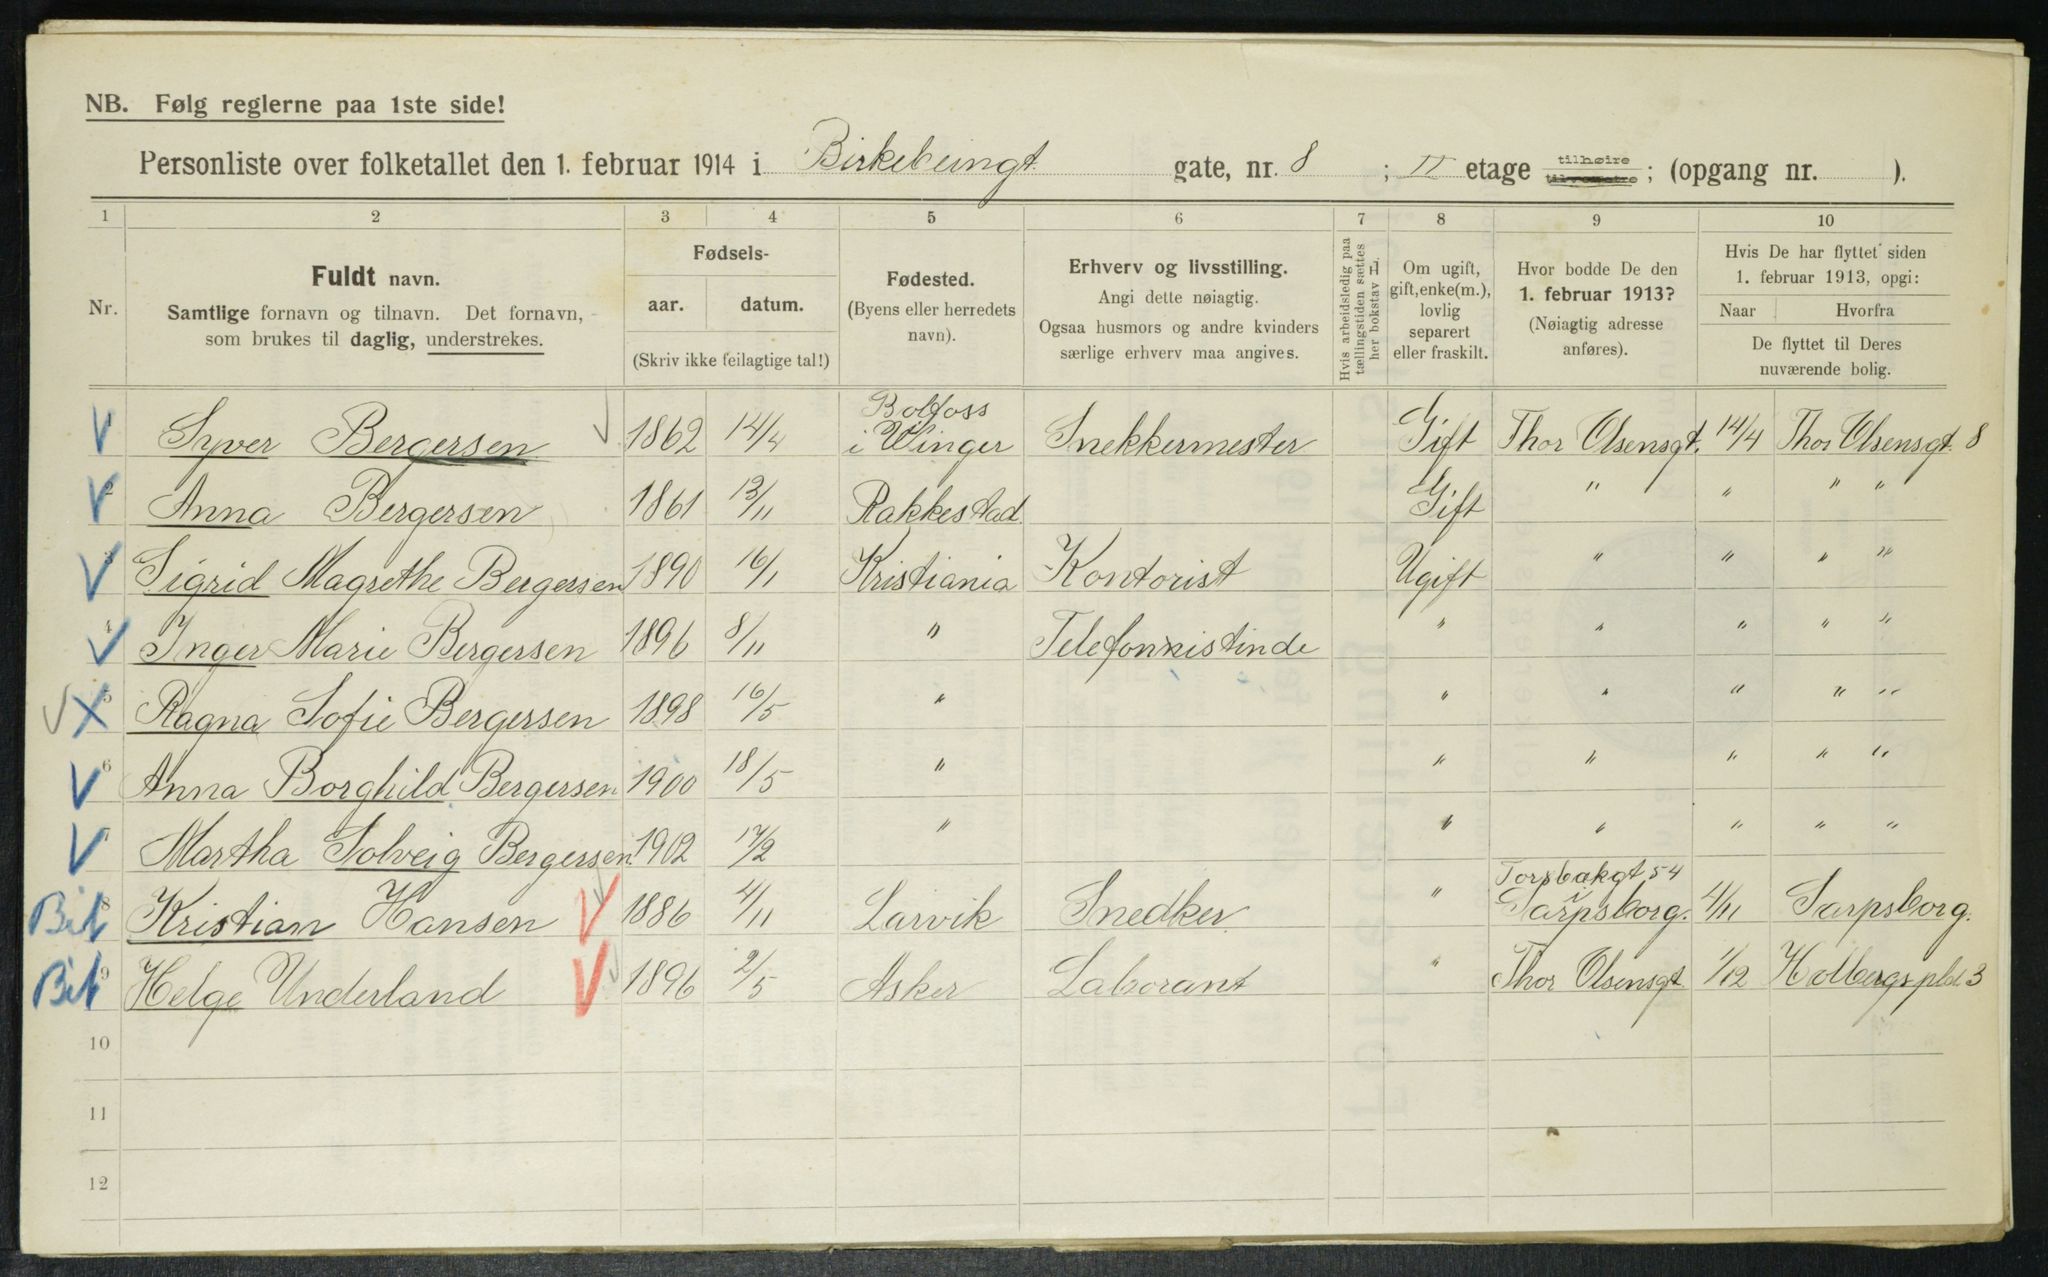 NB. Følg reglerne paa 1ste side!
Personliste over folketallet den 1. februar 1914 i Birkebeingt. gate, nr. 8 ; II etage tilhøire tilvenstre ; (opgang nr. ).
1 2 3 4 5 6 7 8 9 10
Nr.
Fuldt navn.
Samtlige fornavn og tilnavn. Det fornavn,
som brukes til daglig, understrekes.
Fødsels-
aar. datum.
(Skriv ikke feilagtige tal!)
Fødested.
(Byens eller herredets
navn).
Erhverv og livsstilling.
Angi dette nøiagtig.
Ogsaa husmors og andre kvinders
særlige erhverv maa angives.
Hvis arbeidsledig paa
tællingstiden sættes
her bokstav L.
Om ugift,
gift, enke(m.),
lovlig
separert
eller fraskilt.
Hvor bodde De den
1. februar 1913?
(Nøiagtig adresse
anføres).
Hvis De har flyttet siden
1. februar 1913, opgi:
Naar Hvorfra
De flyttet til Deres
nuværende bolig.
1 Syver Bergersen 1862 14/4 Bolfoss i Vinger Snekkermester Gift Thor Olsensgt. 14/4 Thor Olsensgt. 8
2 Anna Bergersen 1861 13/11 Rakkestad Gift " " " "
3 Sigrid Magrethe Bergersen 1890 16/1 Kristiania Kontorist Ugift " " " "
4 Inger Marie Bergersen 1896 8/11 " Telefonnistinde " " " " "
5 Ragna Sofie Bergersen 1898 16/5 " " " " " "
6 Anna Borghild Bergersen 1900 18/5 " " " " " "
7 Martha Solveig Bergersen 1902 17/2 " " " " " "
Bib 8 Kristian Hansen 1886 4/11 Larvik Snedker " Torsbakgt 54 Sarpsborg. 4/11 Sarpsborg.
Bib 9 Helge Underland 1896 2/5 Asker Laborant " Thor Olsensgt. 1/12 Holbergs pld. 3
10
11
12